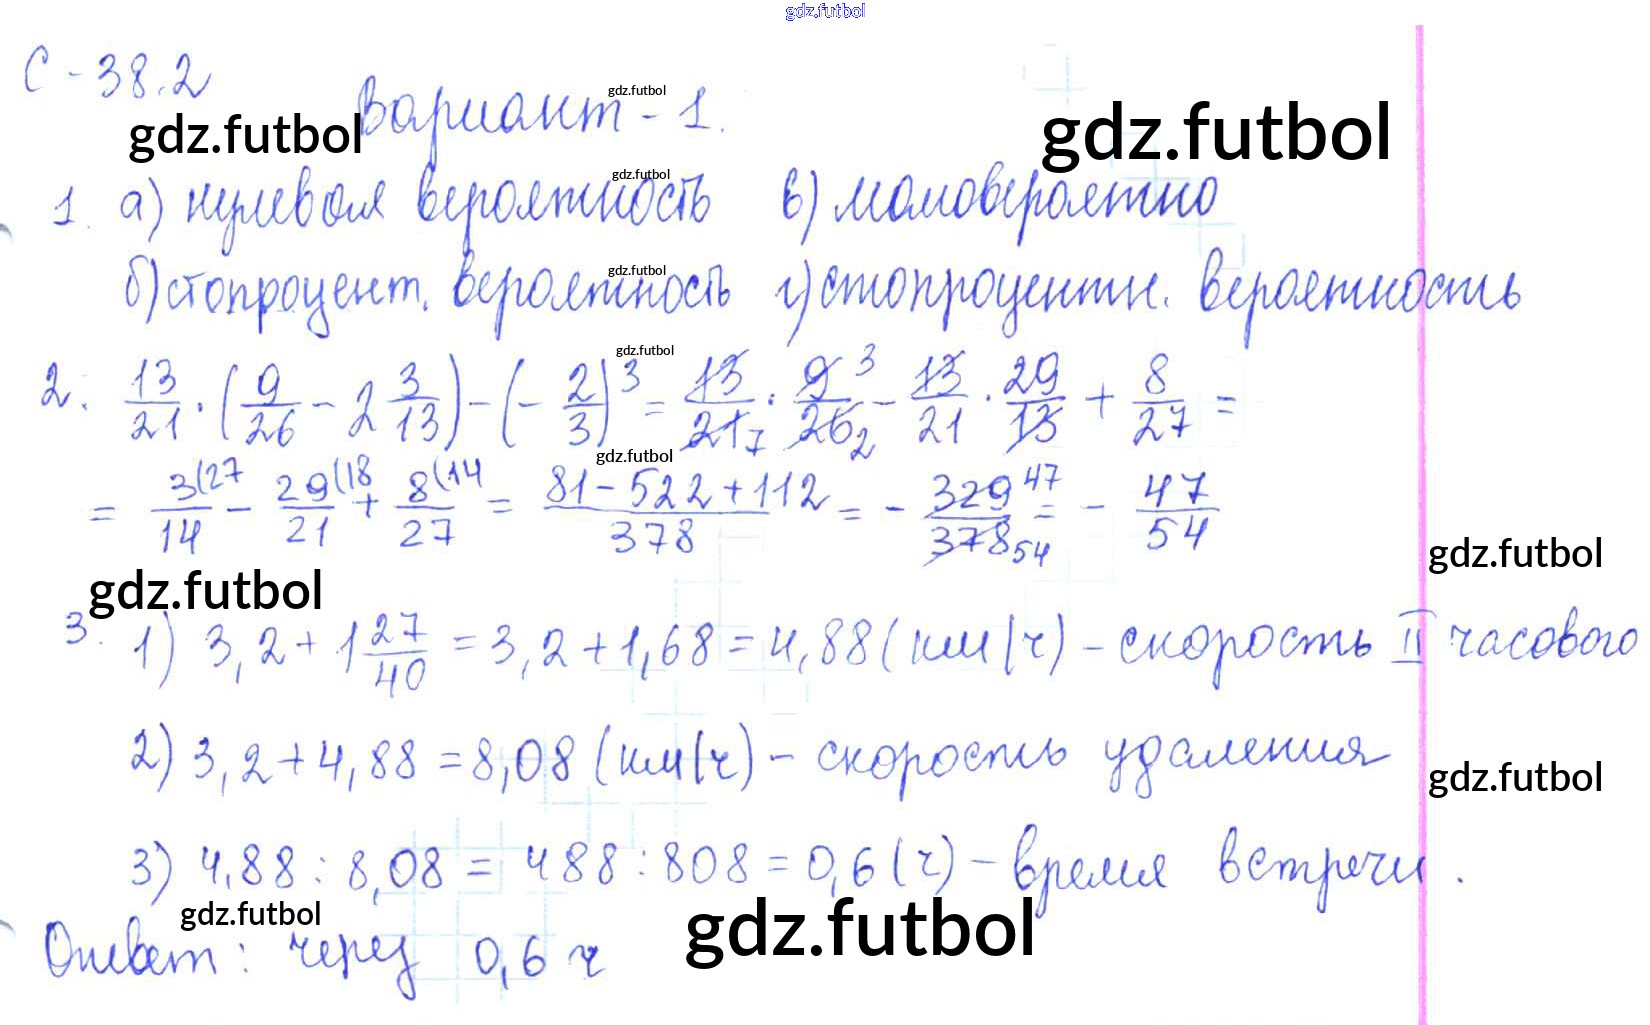 gdz.futbol
С-38.2
gdz.futbol Вариант-1. gdz.futbol gdz.futbol
gdz.futbol
1. а) нулевая вероятность в) маловероятно
gdz.futbol
б) стопроцент. вероятность г) стопроцентн. вероятность
gdz.futbol
2. 13/21 · (9/26 - 2 3/13) - (-2/3)^3 = 13/21 7 · 9 3/26 2 - 13/21 · 29/13 + 8/27 =
gdz.futbol
= 3(27/14 - 29(18/21 + 8(14/27 = 81-522+112/378 = - 329 47/378 54 = - 47/54
gdz.futbol gdz.futbol
3. 1) 3,2 + 1 27/40 = 3,2 + 1,68 = 4,88 (км/ч) - скорость II часового
2) 3,2 + 4,88 = 8,08 (км/ч) - скорость удаления
gdz.futbol
3) 4,88 : 8,08 = 488 : 808 = 0,6 (ч) - время встречи.
gdz.futbol gdz.futbol
Ответ: через 0,6 ч